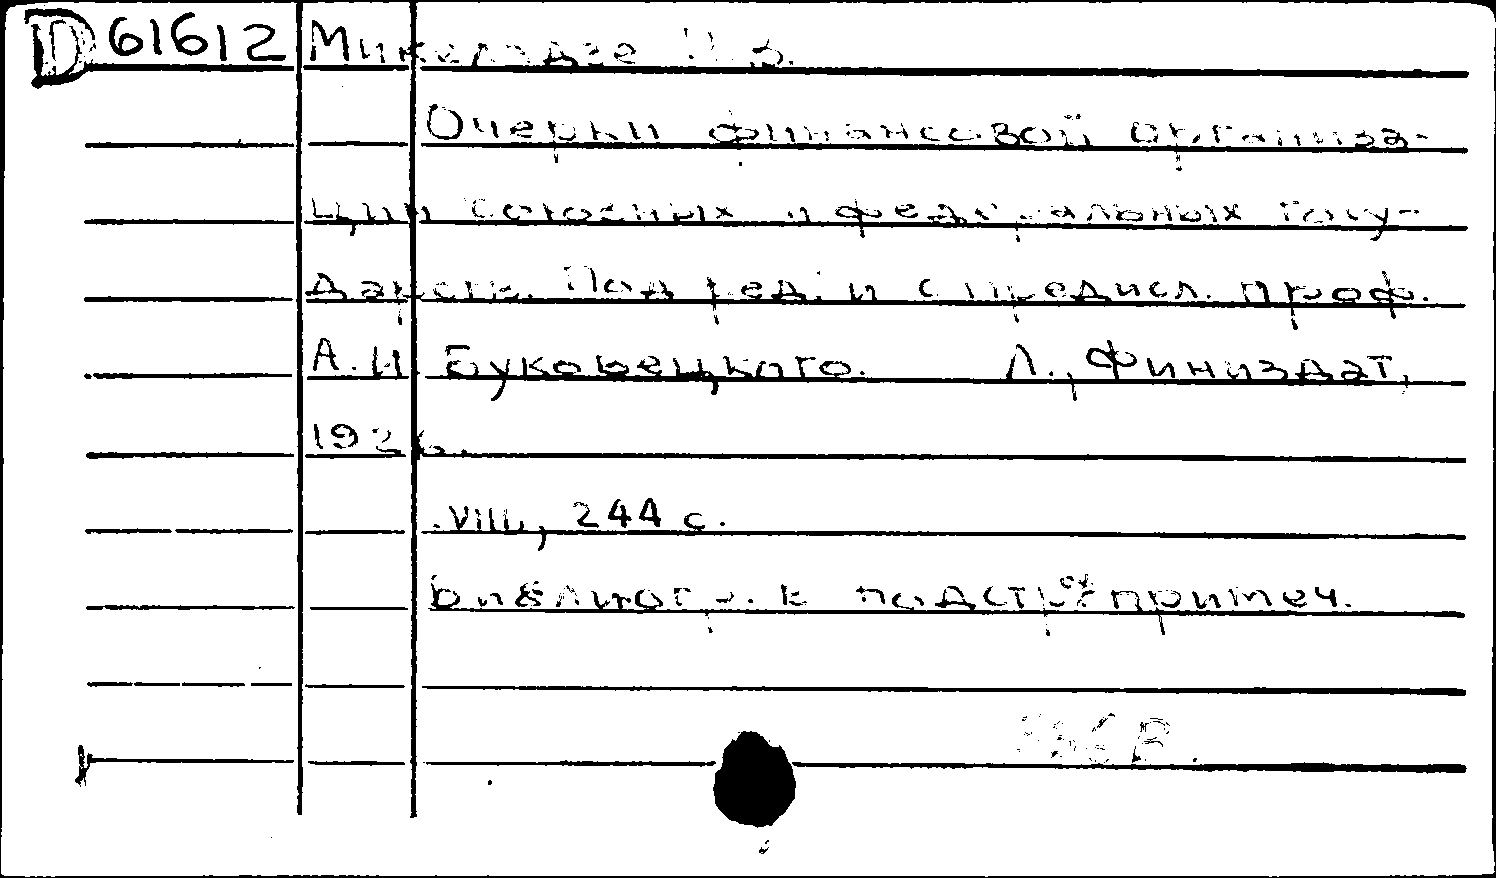 D 61612 Микеладзе П. В.
Очерки финансовой организа-
ции союзных и федеральных госу-
дарств. Под ред. и с предисл. проф.
А.И. Буковецкого. Л., Финиздат,
1926.
VIII, 244 с.
Библиогр. в подстр. примеч.